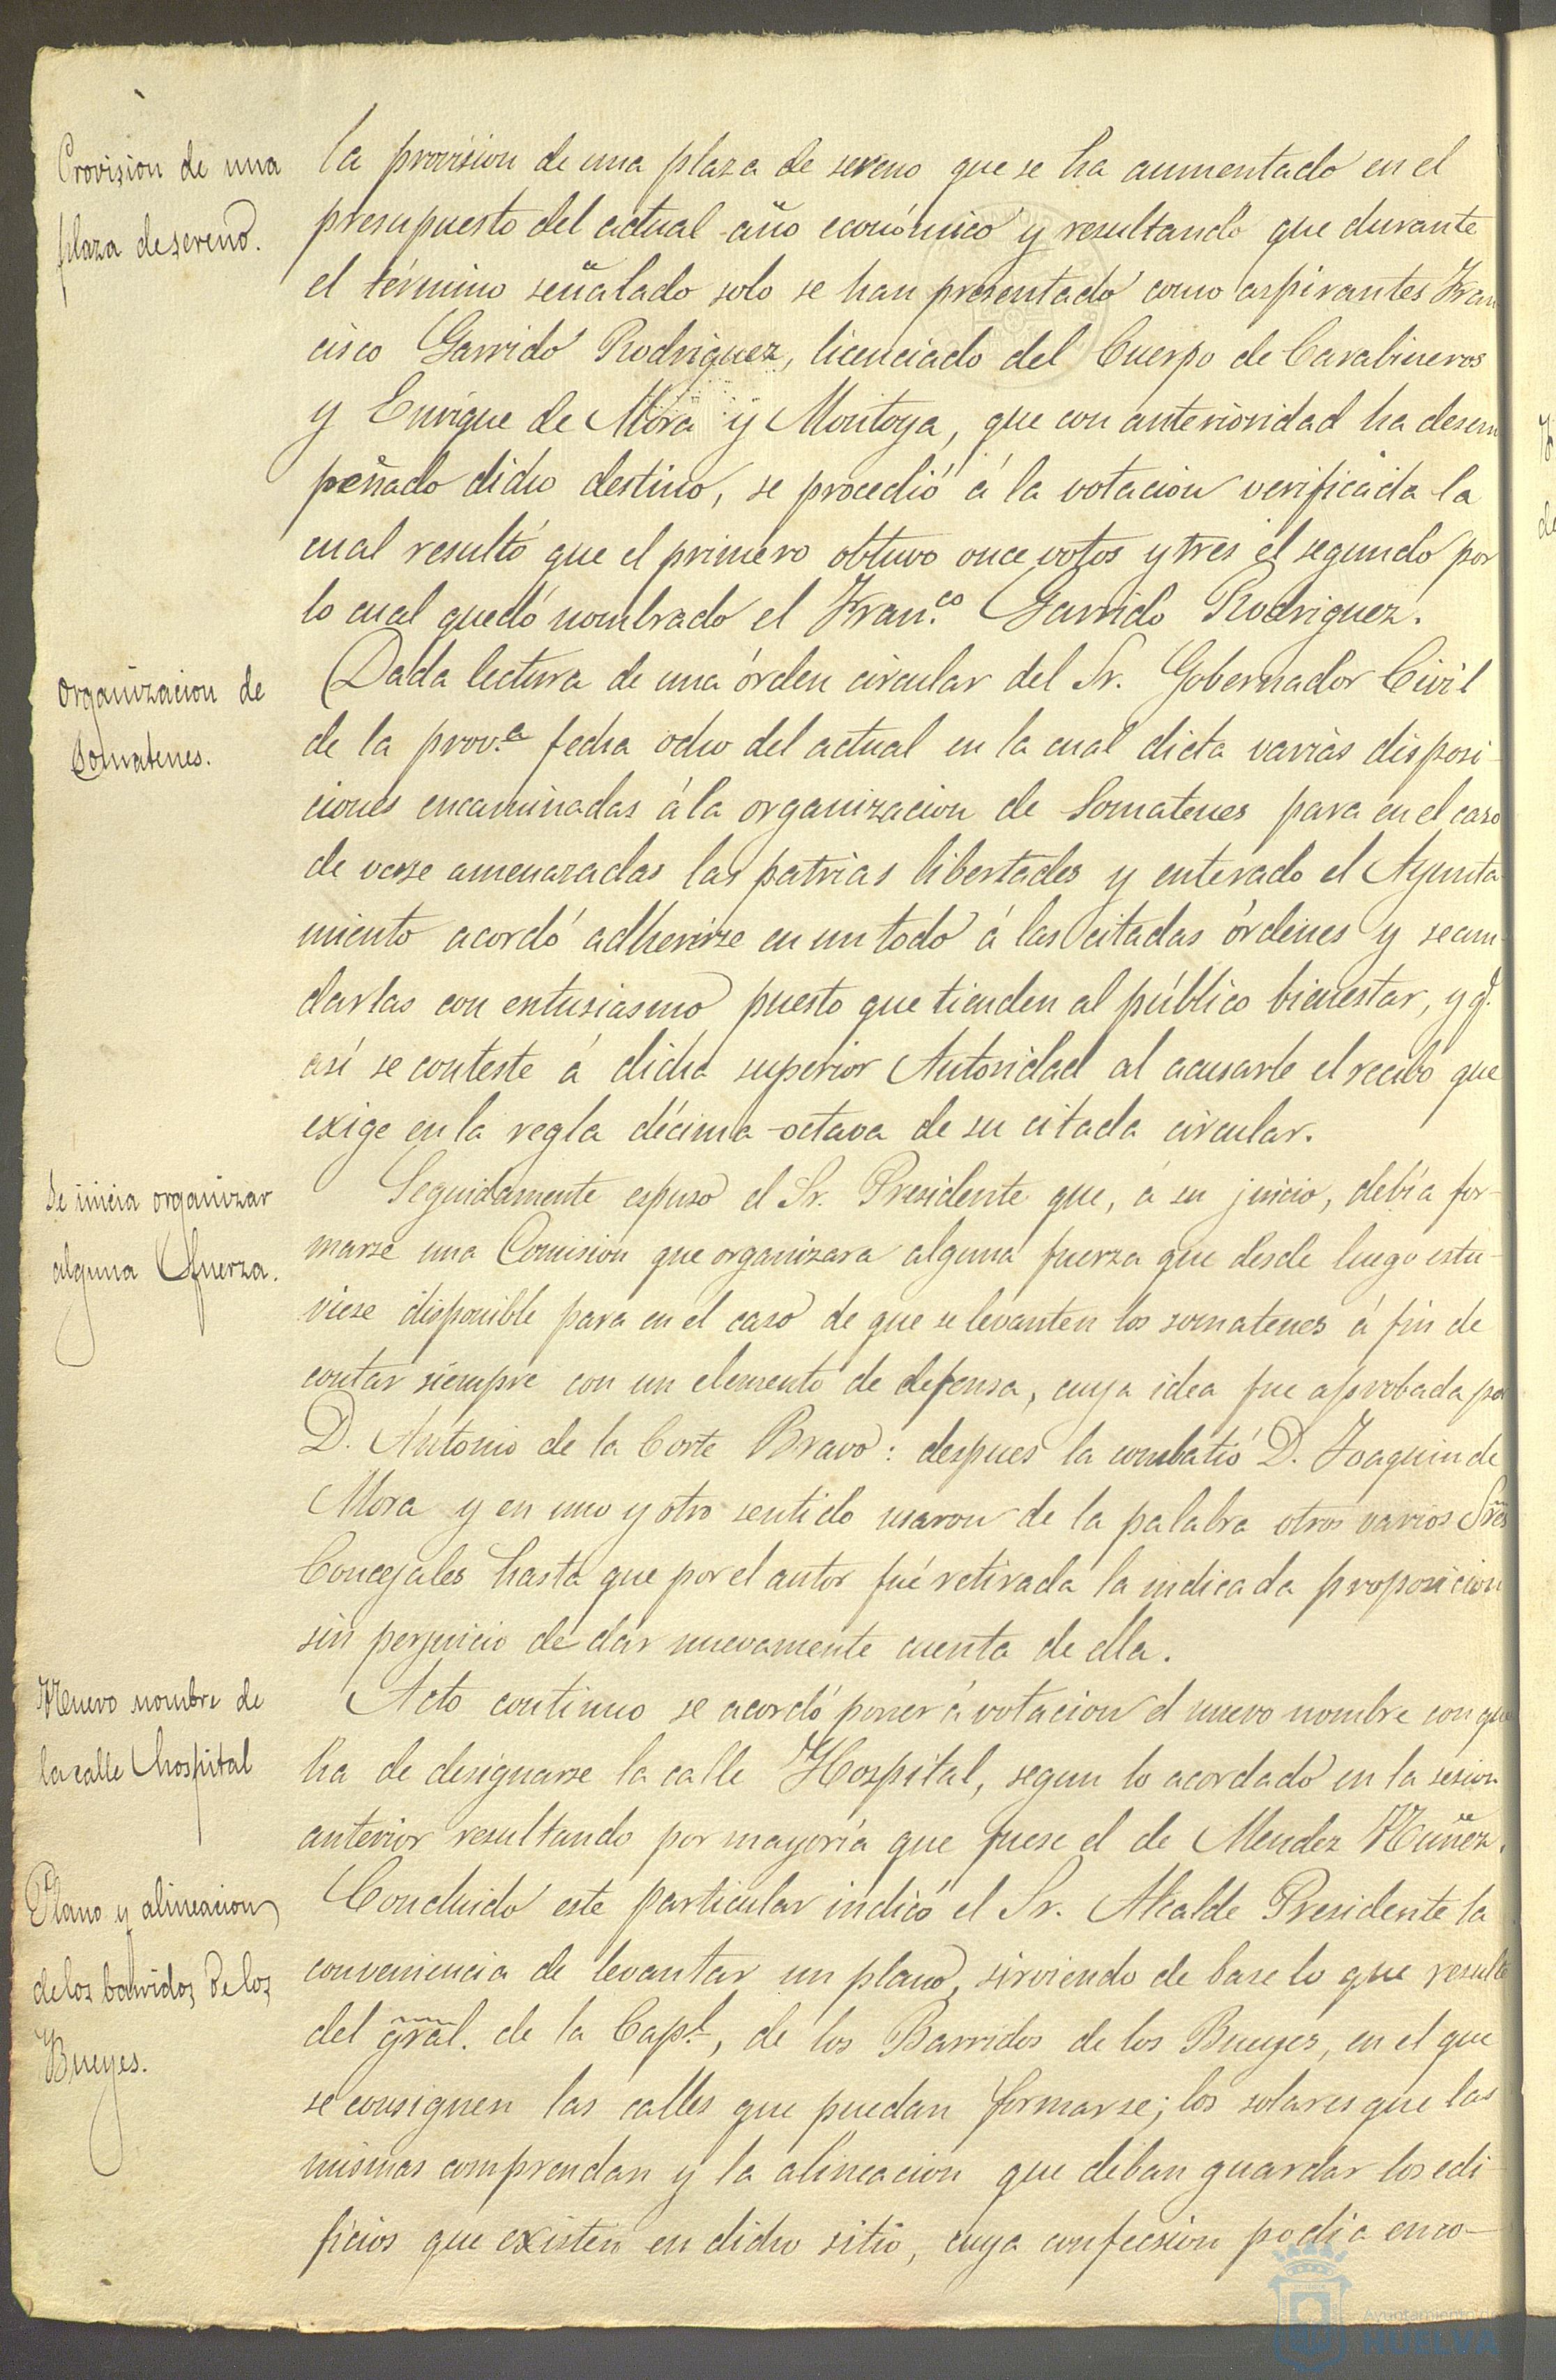 Provision de una
plaza de sereno.
la provision de una plaza de sereno que se ha aumentado en el
presupuesto del actual año económico y resultando que durante
el término señalado solo se han presentado como aspirantes Fran
cisco Garrido Rodriguez, licenciado del Cuerpo de Carabineros
y Enrique de Mora y Montoya, que con anterioridad ha desem
peñado dicho destino, se procedió á la votacion verificada la
cual resultó que el primero obtuvo once votos y tres el segundo por
lo cual quedó nombrado el Fran.co Garrido Rodriguez.
Organizacion de
Somatenes.
Dada lectura de una órden circular del Sr. Gobernador Civil
de la prov.a fecha ocho del actual en la cual dicta varias disposi-
ciones encaminadas á la organizacion de Somatenes para en el caso
de verse amenazadas las patrias libertades y enterado el Ayunta
miento acordó adherirse en un todo á las citadas órdenes y secun-
darlas con entusiasmo puesto que tienden al público bienestar, y q.
así se conteste á dicha superior Autoridad al acusarle el recibo que
exige en la regla décima-octava de su citada circular.
Se inicia organizar
alguna fuerza.
Seguidamente espuso el Sr. Presidente que, á su juicio, debía for-
marse una Comision que organizara alguna fuerza que desde luego estu-
viese disponible para en el caso de que se levanten los somatenes á fin de
contar siempre con un elemento de defensa, cuya idea fue aprobada por
D. Antonio de la Corte Bravo: despues la combatió D. Joaquin de
Mora y en uno y otro sentido usaron de la palabra otros varios Sres
Concejales hasta que por el autor fué retirada la indicada proposicion
sin perjuicio de dar nuevamente cuenta de ella.
Nuevo nombre de
la calle hospital
Acto continuo se acordó poner á votacion el nuevo nombre con que
ha de designarse la calle Hospital, segun lo acordado en la sesion
anterior resultando por mayoría que fuese el de Mendez Nuñez.
Plano y alineacion
de los barridos de los
Bueyes.
Concluido este particular indicó el Sr. Alcalde Presidente la
conveniencia de levantar un plano, sirviendo de base lo que resulte
del gral. de la Cap.l, de los Barridos de los Bueyes, en el que
se consignen las calles que puedan formarse; los solares que las
mismas comprendan y la alineacion que deban guardar los edi-
ficios que existen en dicho sitio, cuya confeccion podia enco-
Ayuntamiento de
HUELVA